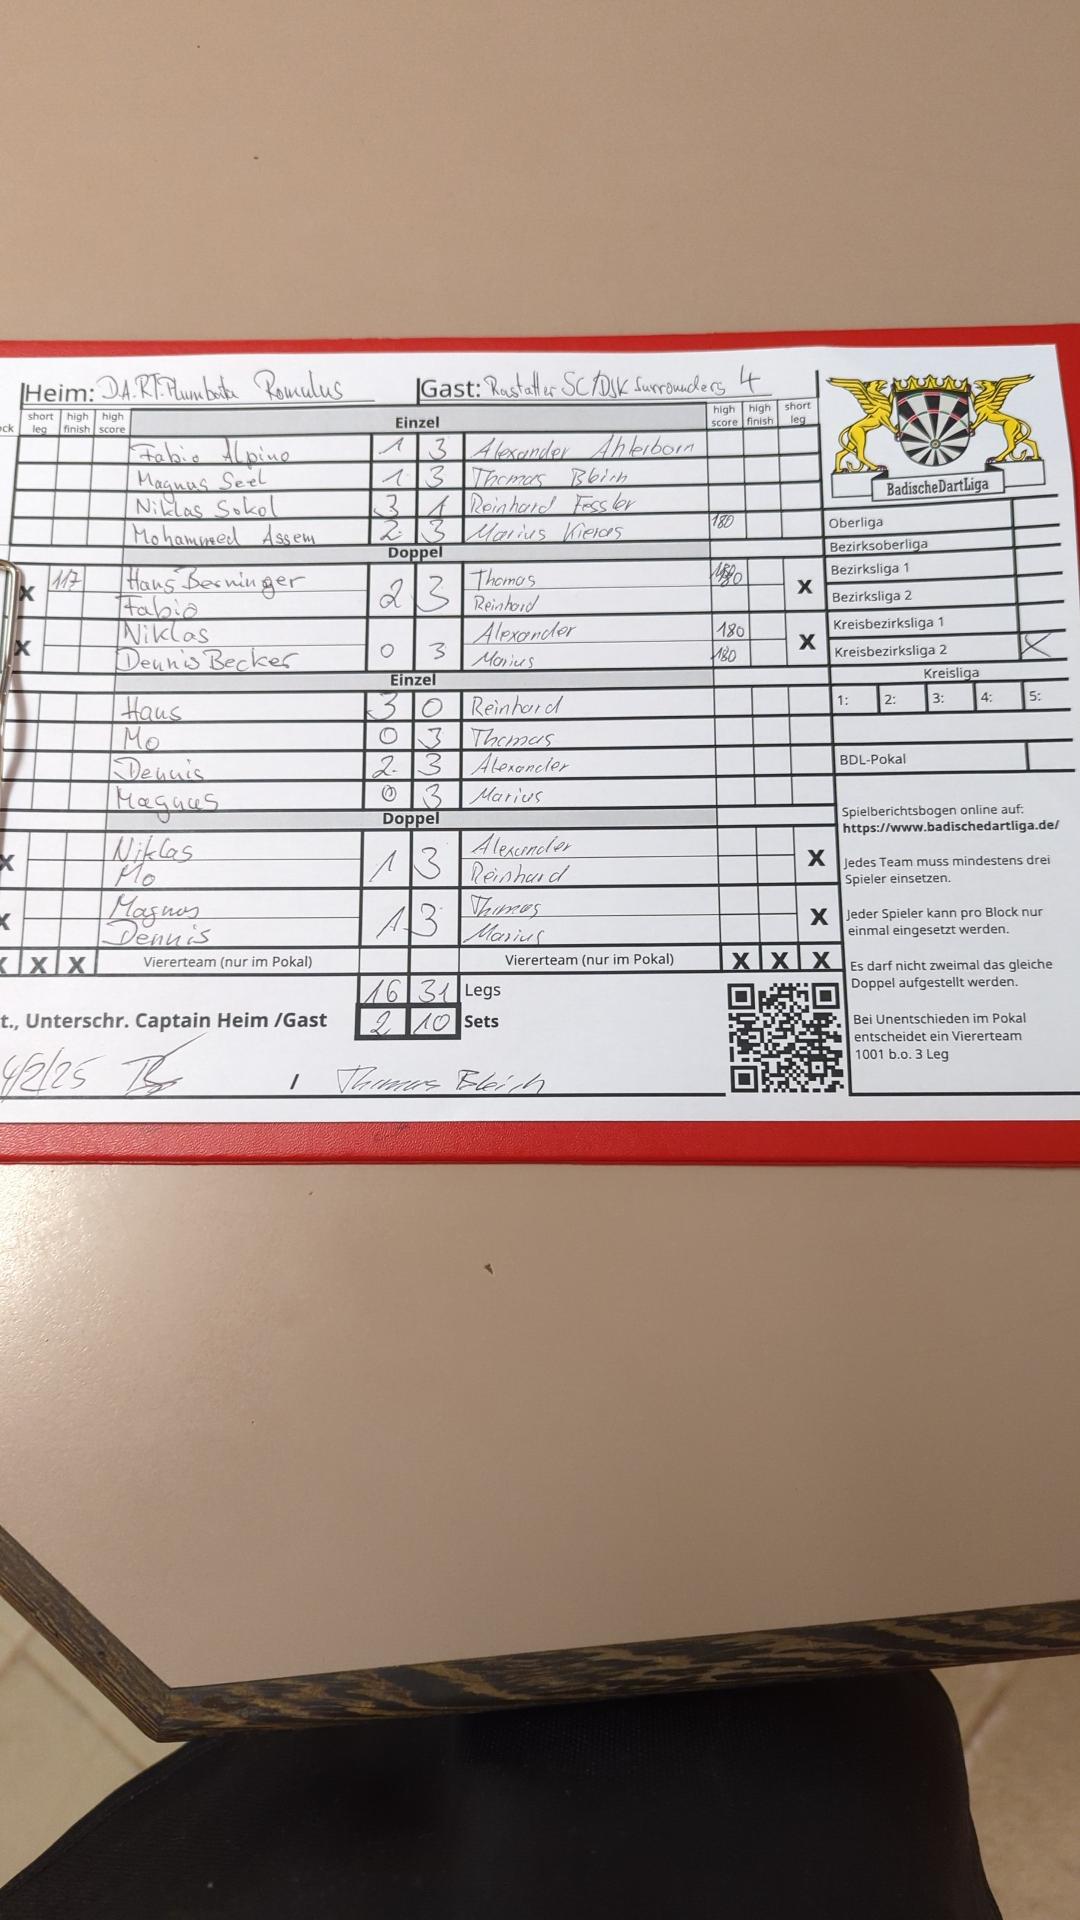 Heim: D.A.R.T. Plumbata Romulus Gast: Rastatter SC/DSK Surrounders 4
ck short leg high finish high score Einzel high score high finish short leg
Fabio Alpino 1 3 Alexander Ahlerborn
Magnus Seel 1 3 Thomas Bleich
Niklas Sokol 3 1 Reinhard Fessler
Mohammed Assem 2 3 Marius Kieras 180
Doppel
X 117 Hans Berninger 2 3 Thomas X
Fabio Reinhard
X Niklas 0 3 Alexander 180 X
Dennis Becker Marius 180
Einzel
Hans 3 0 Reinhard
Mo 0 3 Thomas
Dennis 2 3 Alexander
Magnus 0 3 Marius
Doppel
X Niklas 1 3 Alexander X
Mo Reinhard
X Magnus 1 3 Thomas X
Dennis Marius
X X X Viererteam (nur im Pokal) Viererteam (nur im Pokal) X X X
16 31 Legs
t., Unterschr. Captain Heim /Gast 2 10 Sets
4/2/25 / Thomas Bleich
BadischeDartLiga
Oberliga
Bezirksoberliga
Bezirksliga 1
Bezirksliga 2
Kreisbezirksliga 1
Kreisbezirksliga 2 X
Kreisliga
1: 2: 3: 4: 5:
BDL-Pokal
Spielberichtsbogen online auf:
https://www.badischedartliga.de/
Jedes Team muss mindestens drei
Spieler einsetzen.
Jeder Spieler kann pro Block nur
einmal eingesetzt werden.
Es darf nicht zweimal das gleiche
Doppel aufgestellt werden.
Bei Unentschieden im Pokal
entscheidet ein Viererteam
1001 b.o. 3 Leg